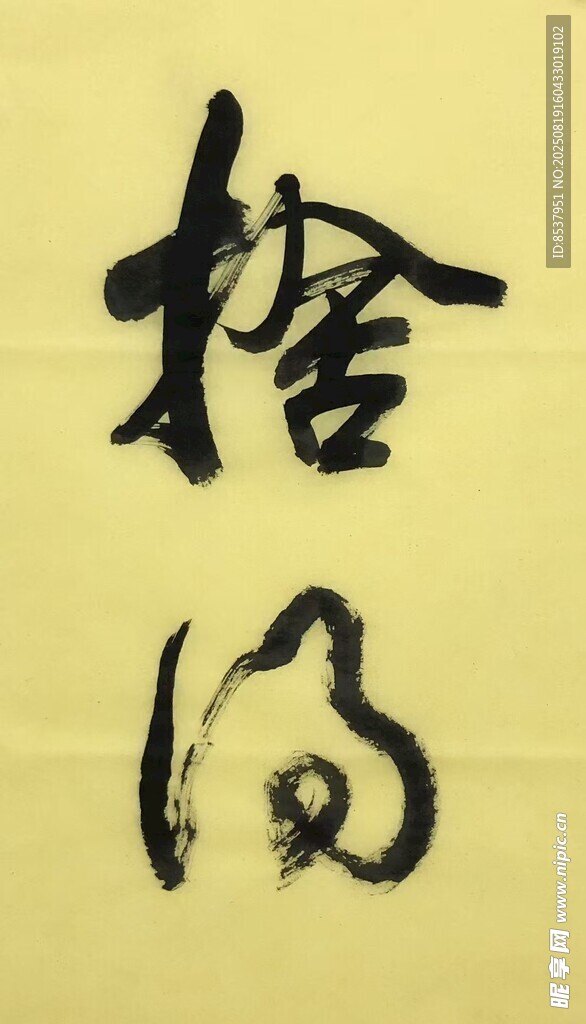 捨
得
ID:8537951 NO:20250819160433019102
昵享网 www.nipic.cn